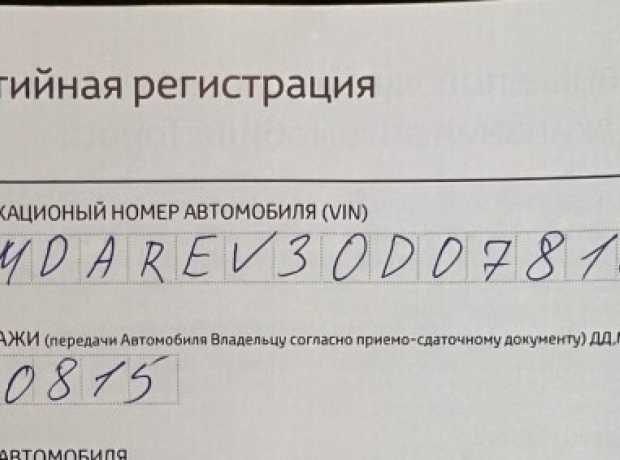 тийная регистрация
КАЦИОНЫЙ НОМЕР АВТОМОБИЛЯ (VIN)
MDAREV30D0781
АЖИ (передачи Автомобиля Владельцу согласно приемо-сдаточному документу) ДД.
0815
АВТОМОБИЛЯ